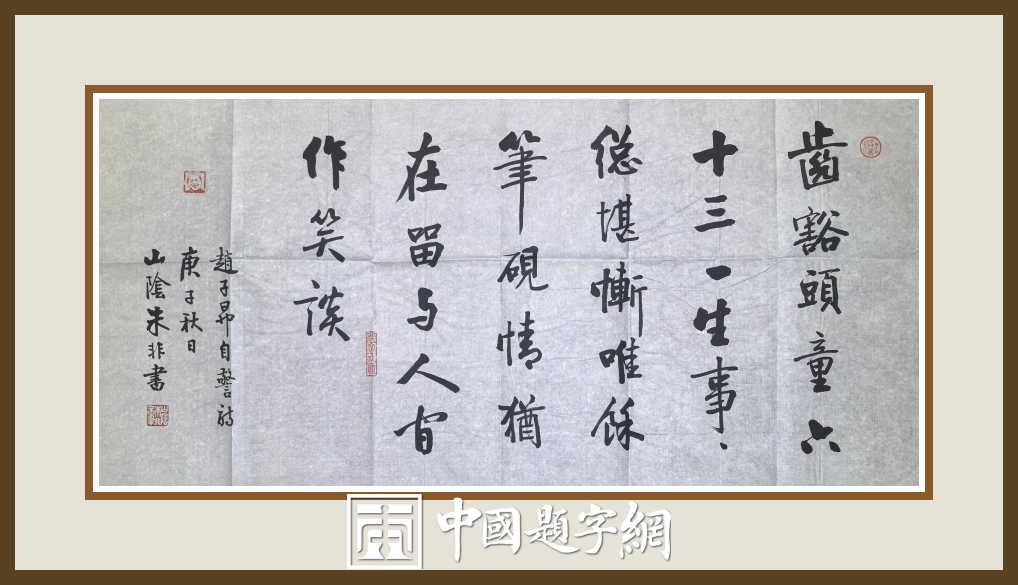 齒豁頭童六
十三一生事、
總堪慚唯餘
筆硯情猶
在留与人間
作笑談
趙子昂自警詩
庚子秋日
山陰朱非書
中國題字網